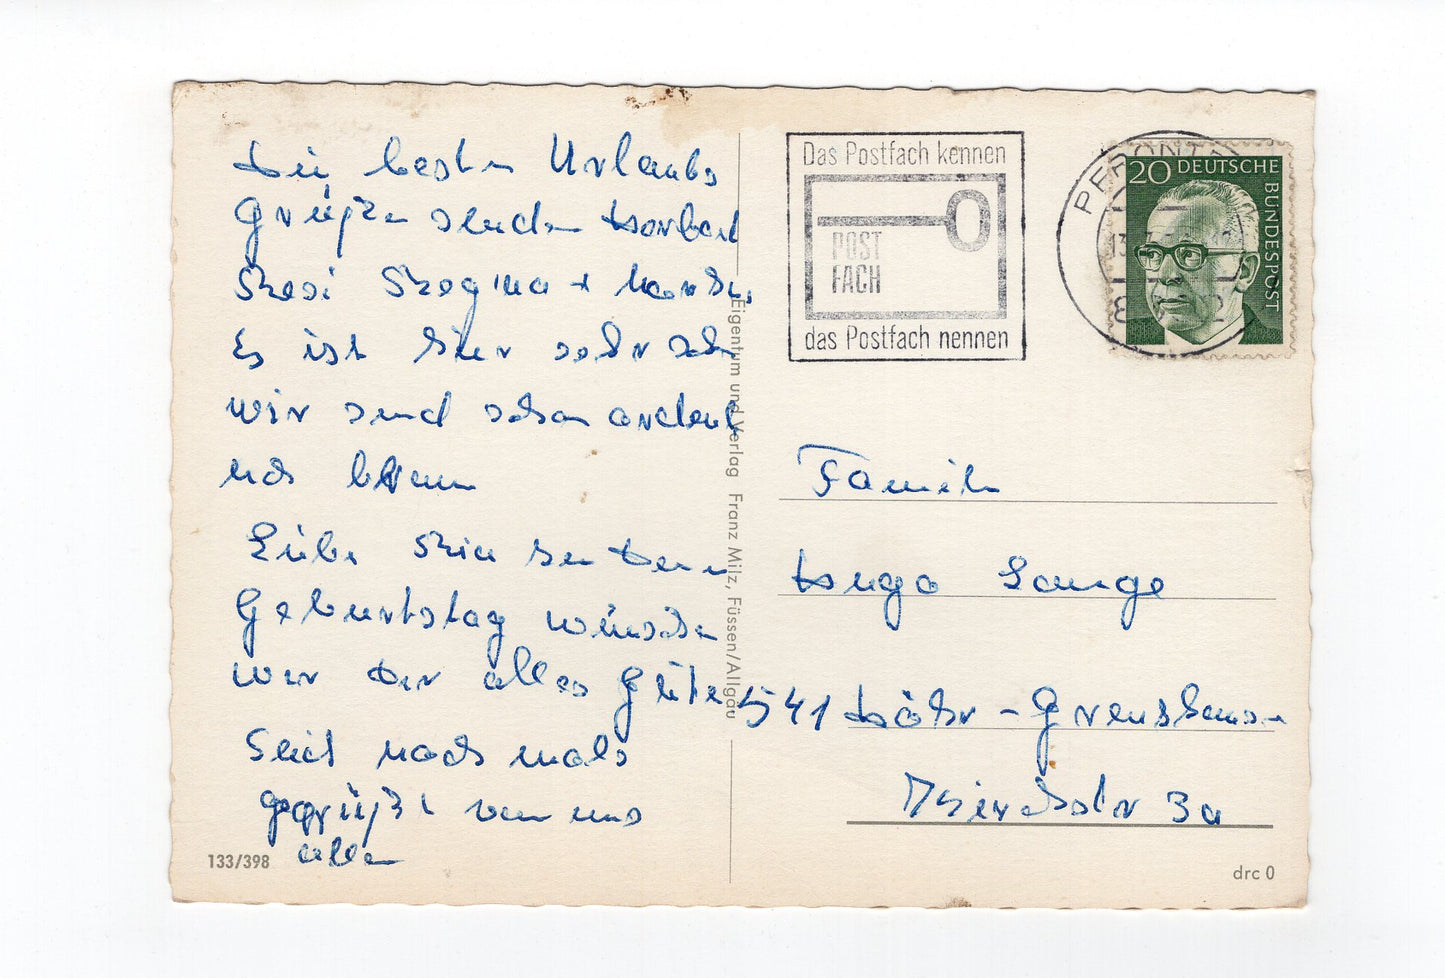 Die besten Urlaubs
Grüße senden Norbert
Resi Regina +
Es ist hier sehr schön
wir sind schon ordentl.
noch braun
Liebe zu Deinem
Geburtstag wünschen
wir Dir alles Gute
Seid noch mals
gegrüßt von uns
allen
133/398
Eigentum und Verlag Franz Milz, Füssen/Allgäu
Das Postfach kennen
POST
FACH
das Postfach nennen
20 DEUTSCHE
BUNDESPOST
PFRONTEN
Familie
Hugo Lange
541 Höhr-Grenzhausen
3a
drc 0